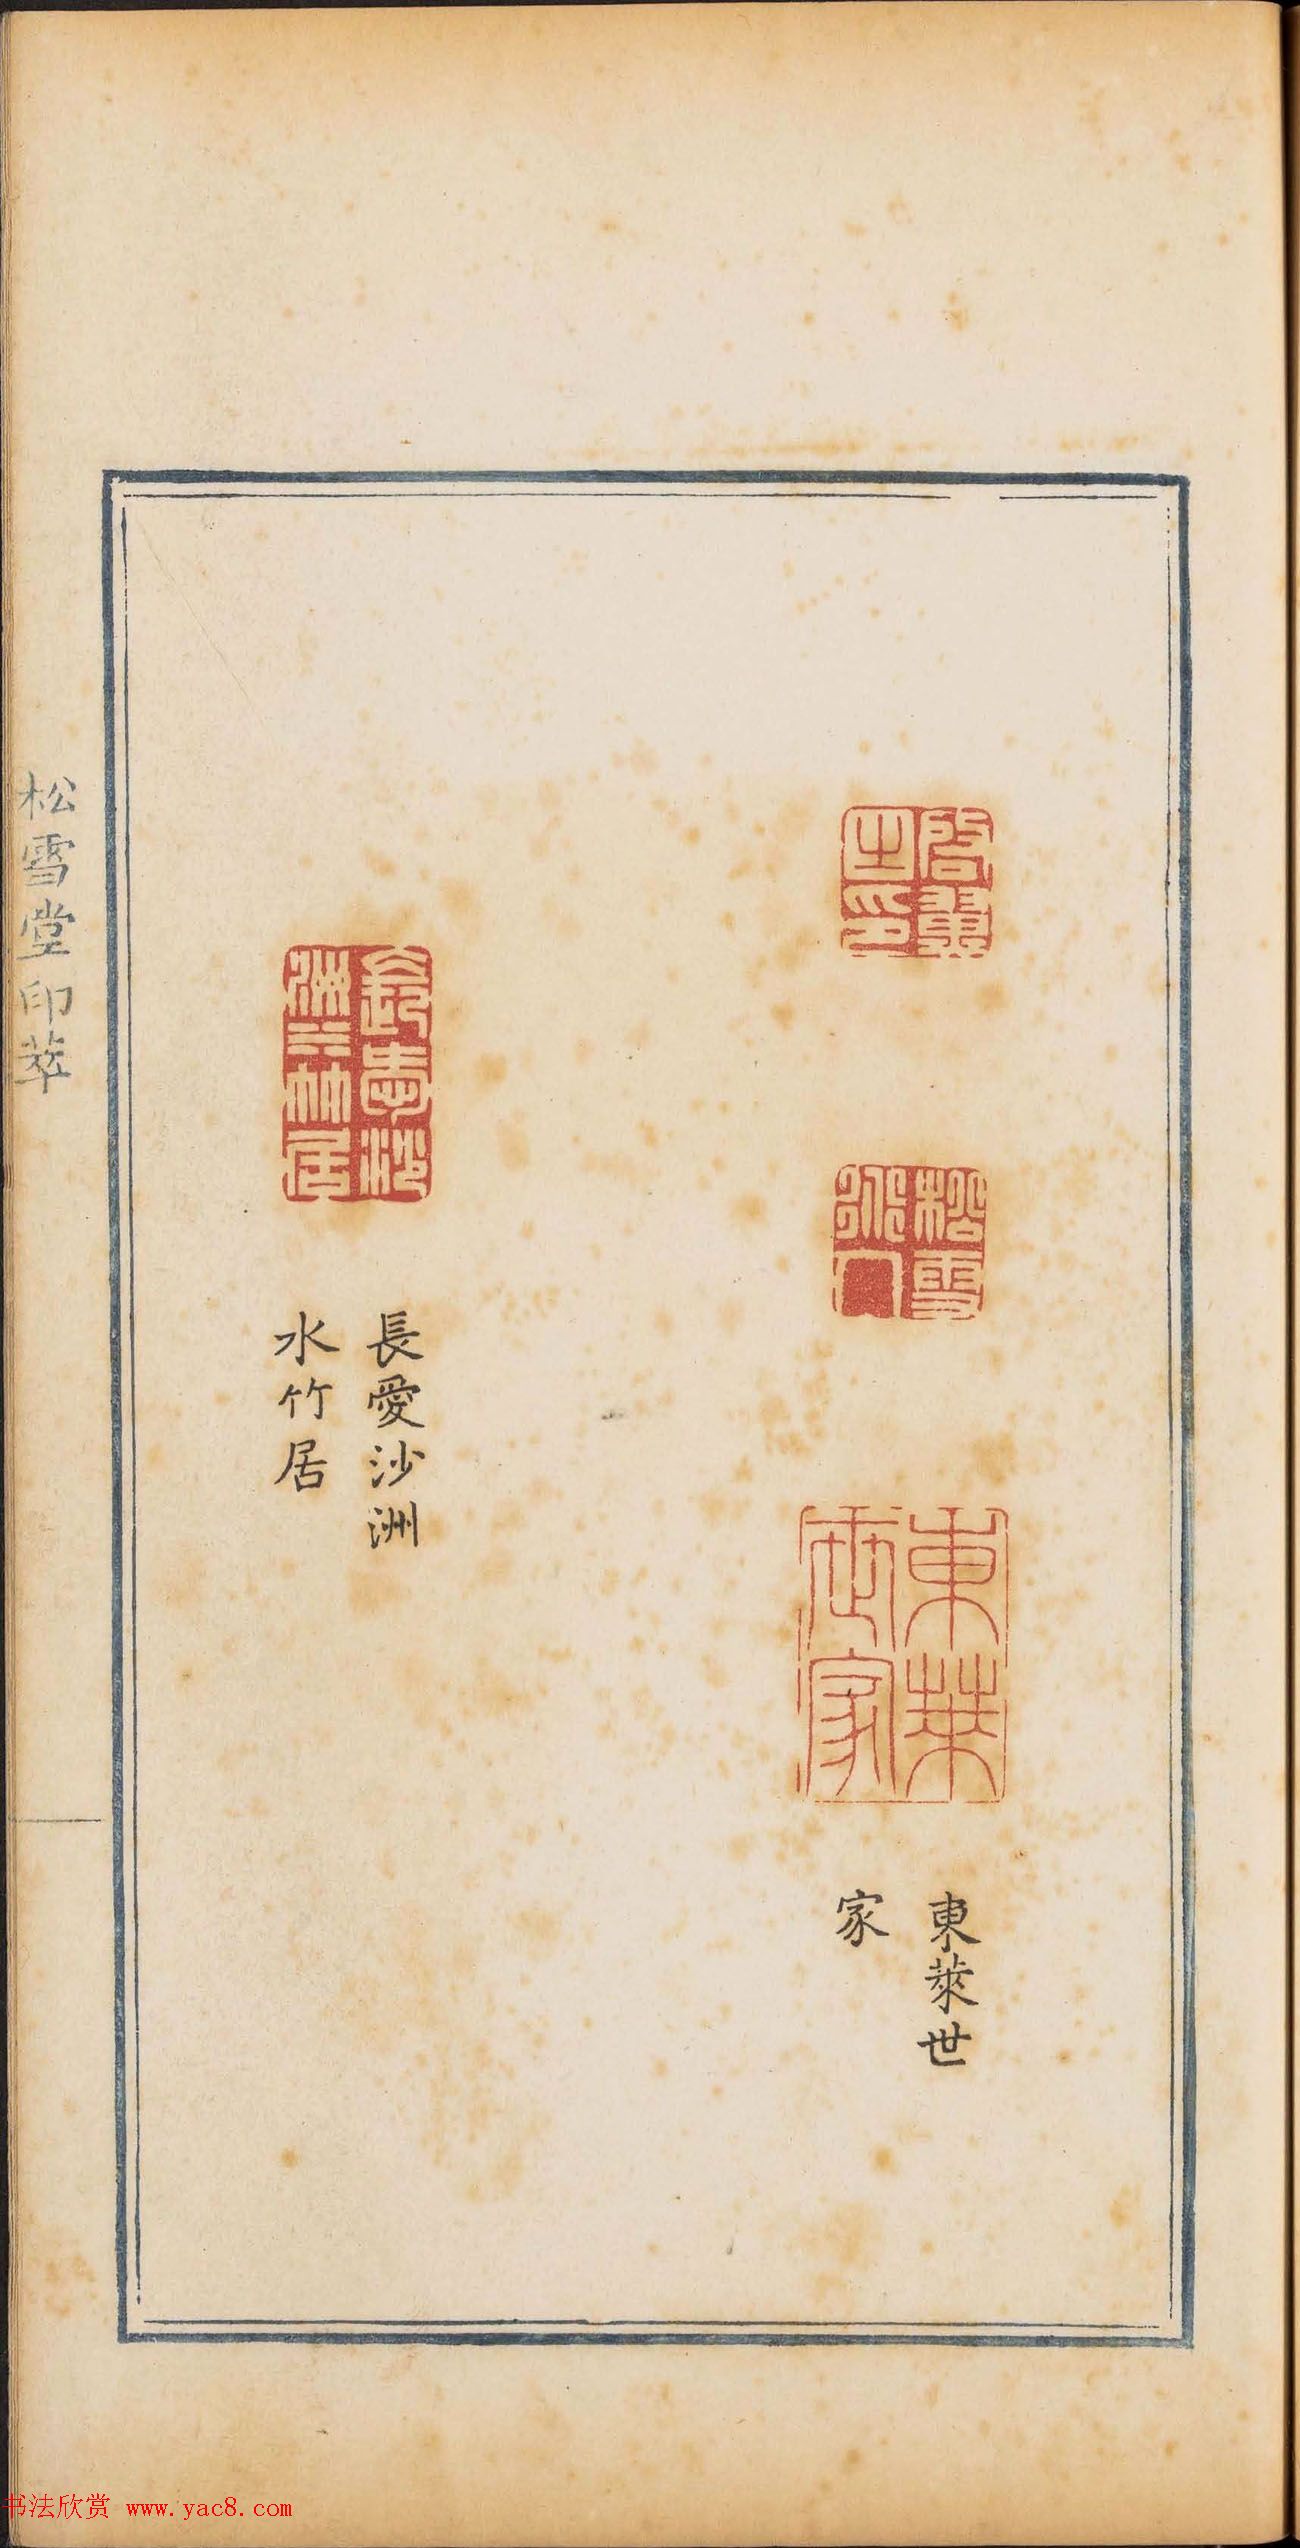 啓翼
之印
松雪
水人
東萊
世家
東萊世
家
長愛沙
洲水竹居
長愛沙洲
水竹居
松雪堂印萃
书法欣赏 www.yac8.com